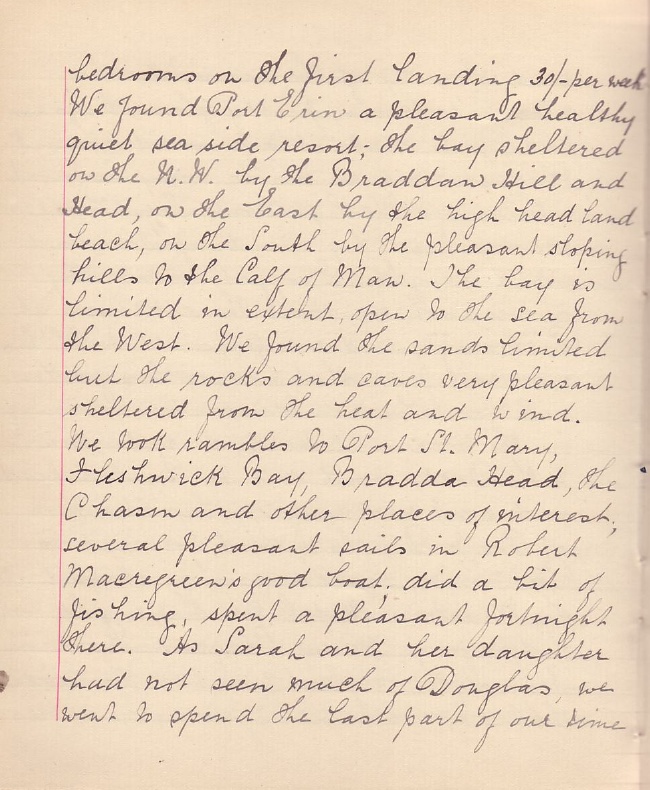 bedrooms on the first landing 30/- per week
We found Port Erin a pleasant healthy
quiet sea side resort; the bay sheltered
on the N.W. by the Braddan Hill and
Head, on the East by the high head land
beach, on the South by the pleasant sloping
hills to the Calf of Man. The bay is
limited in extent, open to the sea from
the West. We found the sands limited
but the rocks and caves very pleasant
sheltered from the heat and wind.
We took rambles to Port St. Mary,
Fleshwick Bay, Bradda Head, the
Chasm and other places of interest;
several pleasant sails in Robert
Macregreen's good boat, did a bit of
fishing, spent a pleasant fortnight
there. As Sarah and her daughter
had not seen much of Douglas, we
went to spend the last part of our time